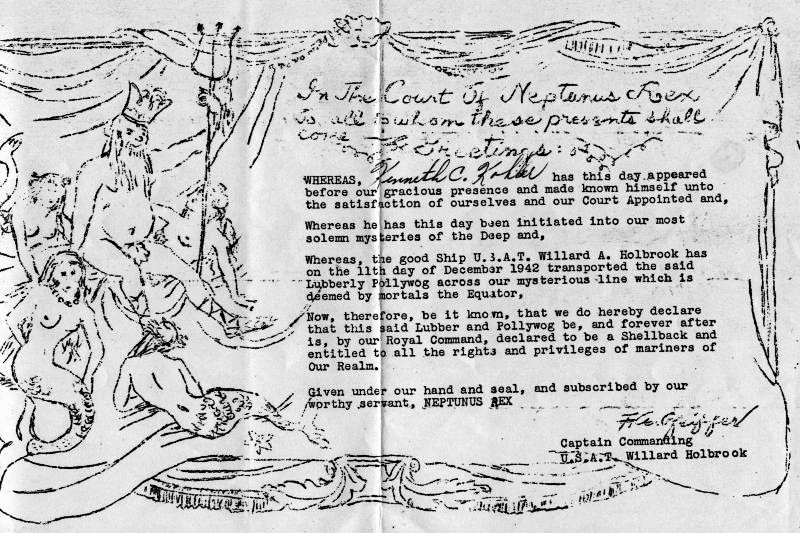 In The Court Of Neptunus Rex
To all to whom these presents shall
come Greetings:
WHEREAS, Kenneth C. has this day appeared
before our gracious presence and made known himself unto
the satisfaction of ourselves and our Court Appointed and,
Whereas he has this day been initiated into our most
solemn mysteries of the Deep and,
Whereas, the good Ship U.S.A.T. Willard A. Holbrook has
on the 11th day of December 1942 transported the said
Lubberly Pollywog across our mysterious line which is
deemed by mortals the Equator,
Now, therefore, be it known, that we do hereby declare
that this said Lubber and Pollywog be, and forever after
is, by our Royal Command, declared to be a Shellback and
entitled to all the rights and privileges of mariners of
Our Realm.
Given under our hand and seal, and subscribed by our
worthy servant, NEPTUNUS REX
Pfeiffer
Captain Commanding
U.S.A.T. Willard Holbrook